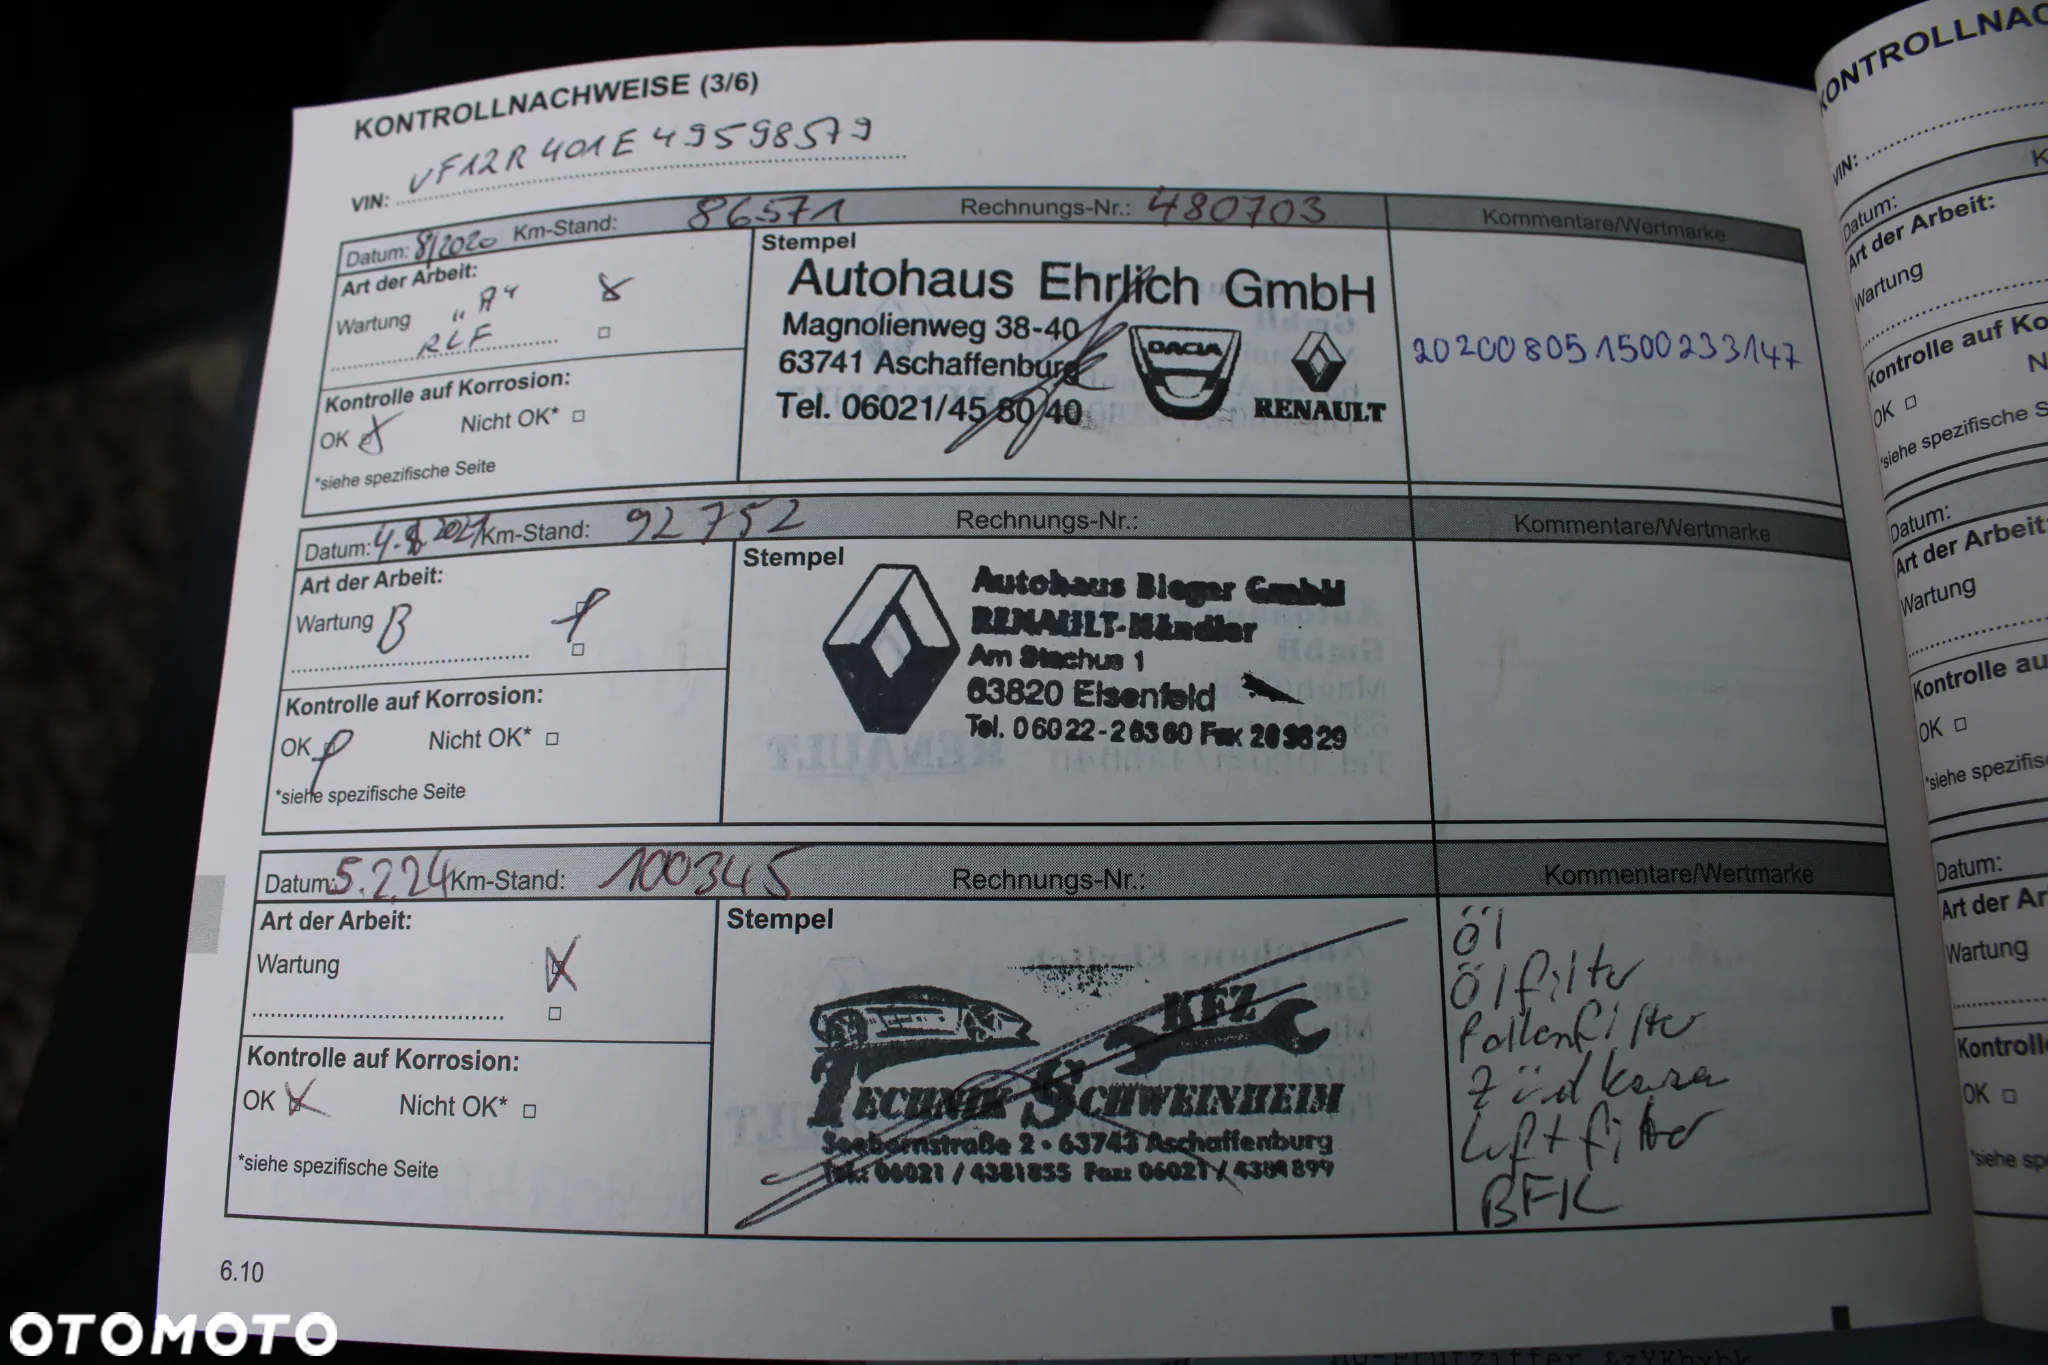 KONTROLLNACHWEISE (3/6)
VIN: VF12R401E49598579
Datum: 8/2020 Km-Stand: 86571 Rechnungs-Nr.: 480703 Kommentare/Wertmarke
Art der Arbeit:
Wartung "A"
RLF
Kontrolle auf Korrosion:
OK Nicht OK*
*siehe spezifische Seite
Stempel
Autohaus Ehrlich GmbH
Magnolienweg 38-40
63741 Aschaffenburg
Tel. 06021/45 80 40
DACIA
RENAULT
202008051500233147
Datum: 4.8.2021 Km-Stand: 92752 Rechnungs-Nr.: Kommentare/Wertmarke
Art der Arbeit:
Wartung B
Kontrolle auf Korrosion:
OK Nicht OK*
*siehe spezifische Seite
Stempel
Autohaus Bieger GmbH
RENAULT-Händler
Am Stachus 1
63820 Elsenfeld
Tel. 06022-26360 Fax
Datum: 5.2.24 Km-Stand: 100345 Rechnungs-Nr.: Kommentare/Wertmarke
Art der Arbeit:
Wartung
Kontrolle auf Korrosion:
OK Nicht OK*
*siehe spezifische Seite
Stempel
KFZ
TECHNIK SCHWEINHEIM
Seebornstraße 2 • 63743 Aschaffenburg
Tel.: 06021 / 4381855 Fax: 06021 / 4384899
Öl
Ölfilter
Pollenfilter
Luftfilter
BFK
6.10
KONTROLLNAC
VIN:
Datum:
Art der Arbeit:
Wartung
Kontrolle auf Ko
OK
*siehe spezifische S
Datum:
Art der Arbeit:
Wartung
Kontrolle au
OK
*siehe spezifis
Datum:
Art der Ar
Wartung
Kontroll
OK
*siehe sp
OTOMOTO